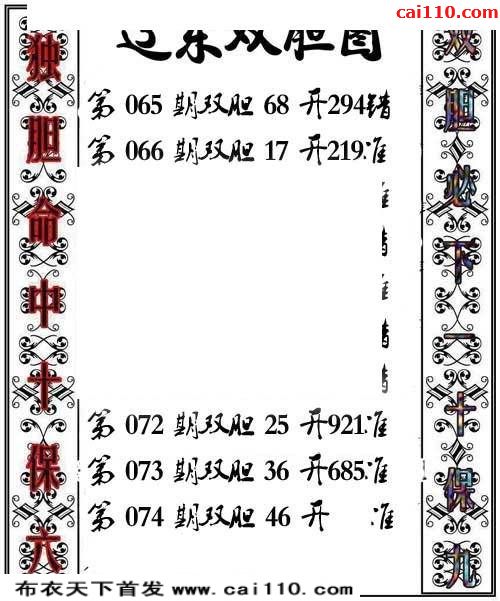 cai110.com
东双胆图
独胆命中十保六
第 065 期双胆 68 开294错
第 066 期双胆 17 开219准
第 072 期双胆 25 开921准
第 073 期双胆 36 开685准
第 074 期双胆 46 开 准
双胆必下一十保九
布衣天下首发 www.cai110.com